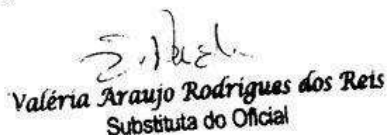 Valéria Araujo Rodrigues dos Reis
Substituta do Oficial